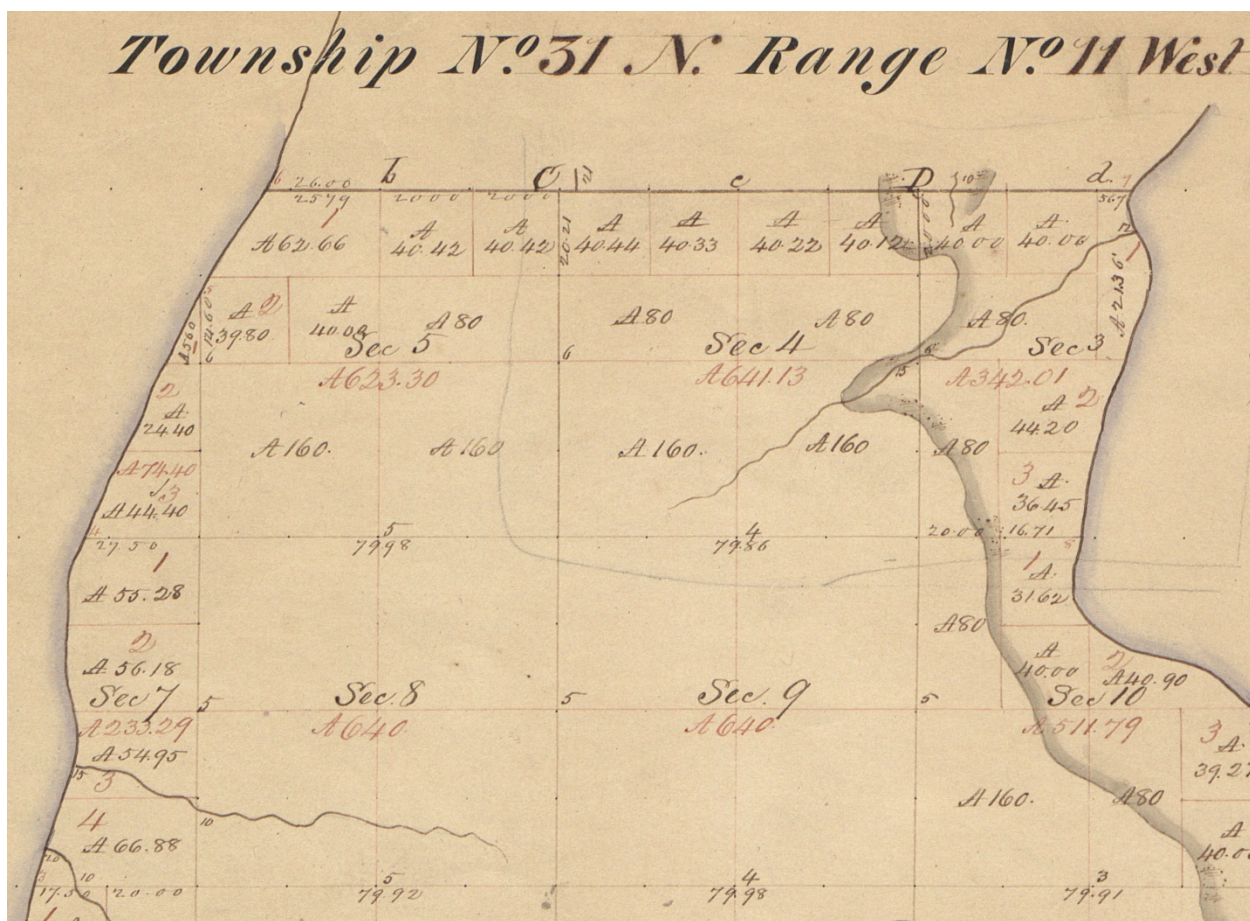 Township No. 31 N. Range No. 11 West
6 26.00 b C 21 c D 10 d. 7
25.79 20.00 20.00 5.67
1
A 62.66 A 40.42 A 40.42 20.21 A 40.44 A 40.33 A 40.22 A 40.12 A 40.00 A 40.00 12 1
A 21.36
A 5.60 14.60 5 A 39.80 2 A 40.00 A 80 A 80 A 80 A 80.
6 Sec 5 6 Sec 4 6 Sec 3
A 623.30 A 641.13 15 A 342.01
2 A 24.40 A 44.20 2
A 160. A 160 A 160. A 160 A 80
A 74.40
3 A 44.40 3 A. 36.45
4 27.50 5 79.98 4 79.86 20.00 16.71 8
1 A 55.28 1 A. 31.62
2 A 56.18 A 80 A 40.00 2 A 40.90
Sec 7 5 Sec. 8 5 Sec. 9 5 Sec 10
A 233.29 A 640 A 640 A 511.79
A 54.95 3 A. 39.27
15 3 A 160. A 80
4 A 66.88 10 A 40.00
20
3 17.50 10 20.00 5 79.92 4 79.98 3 79.91
1